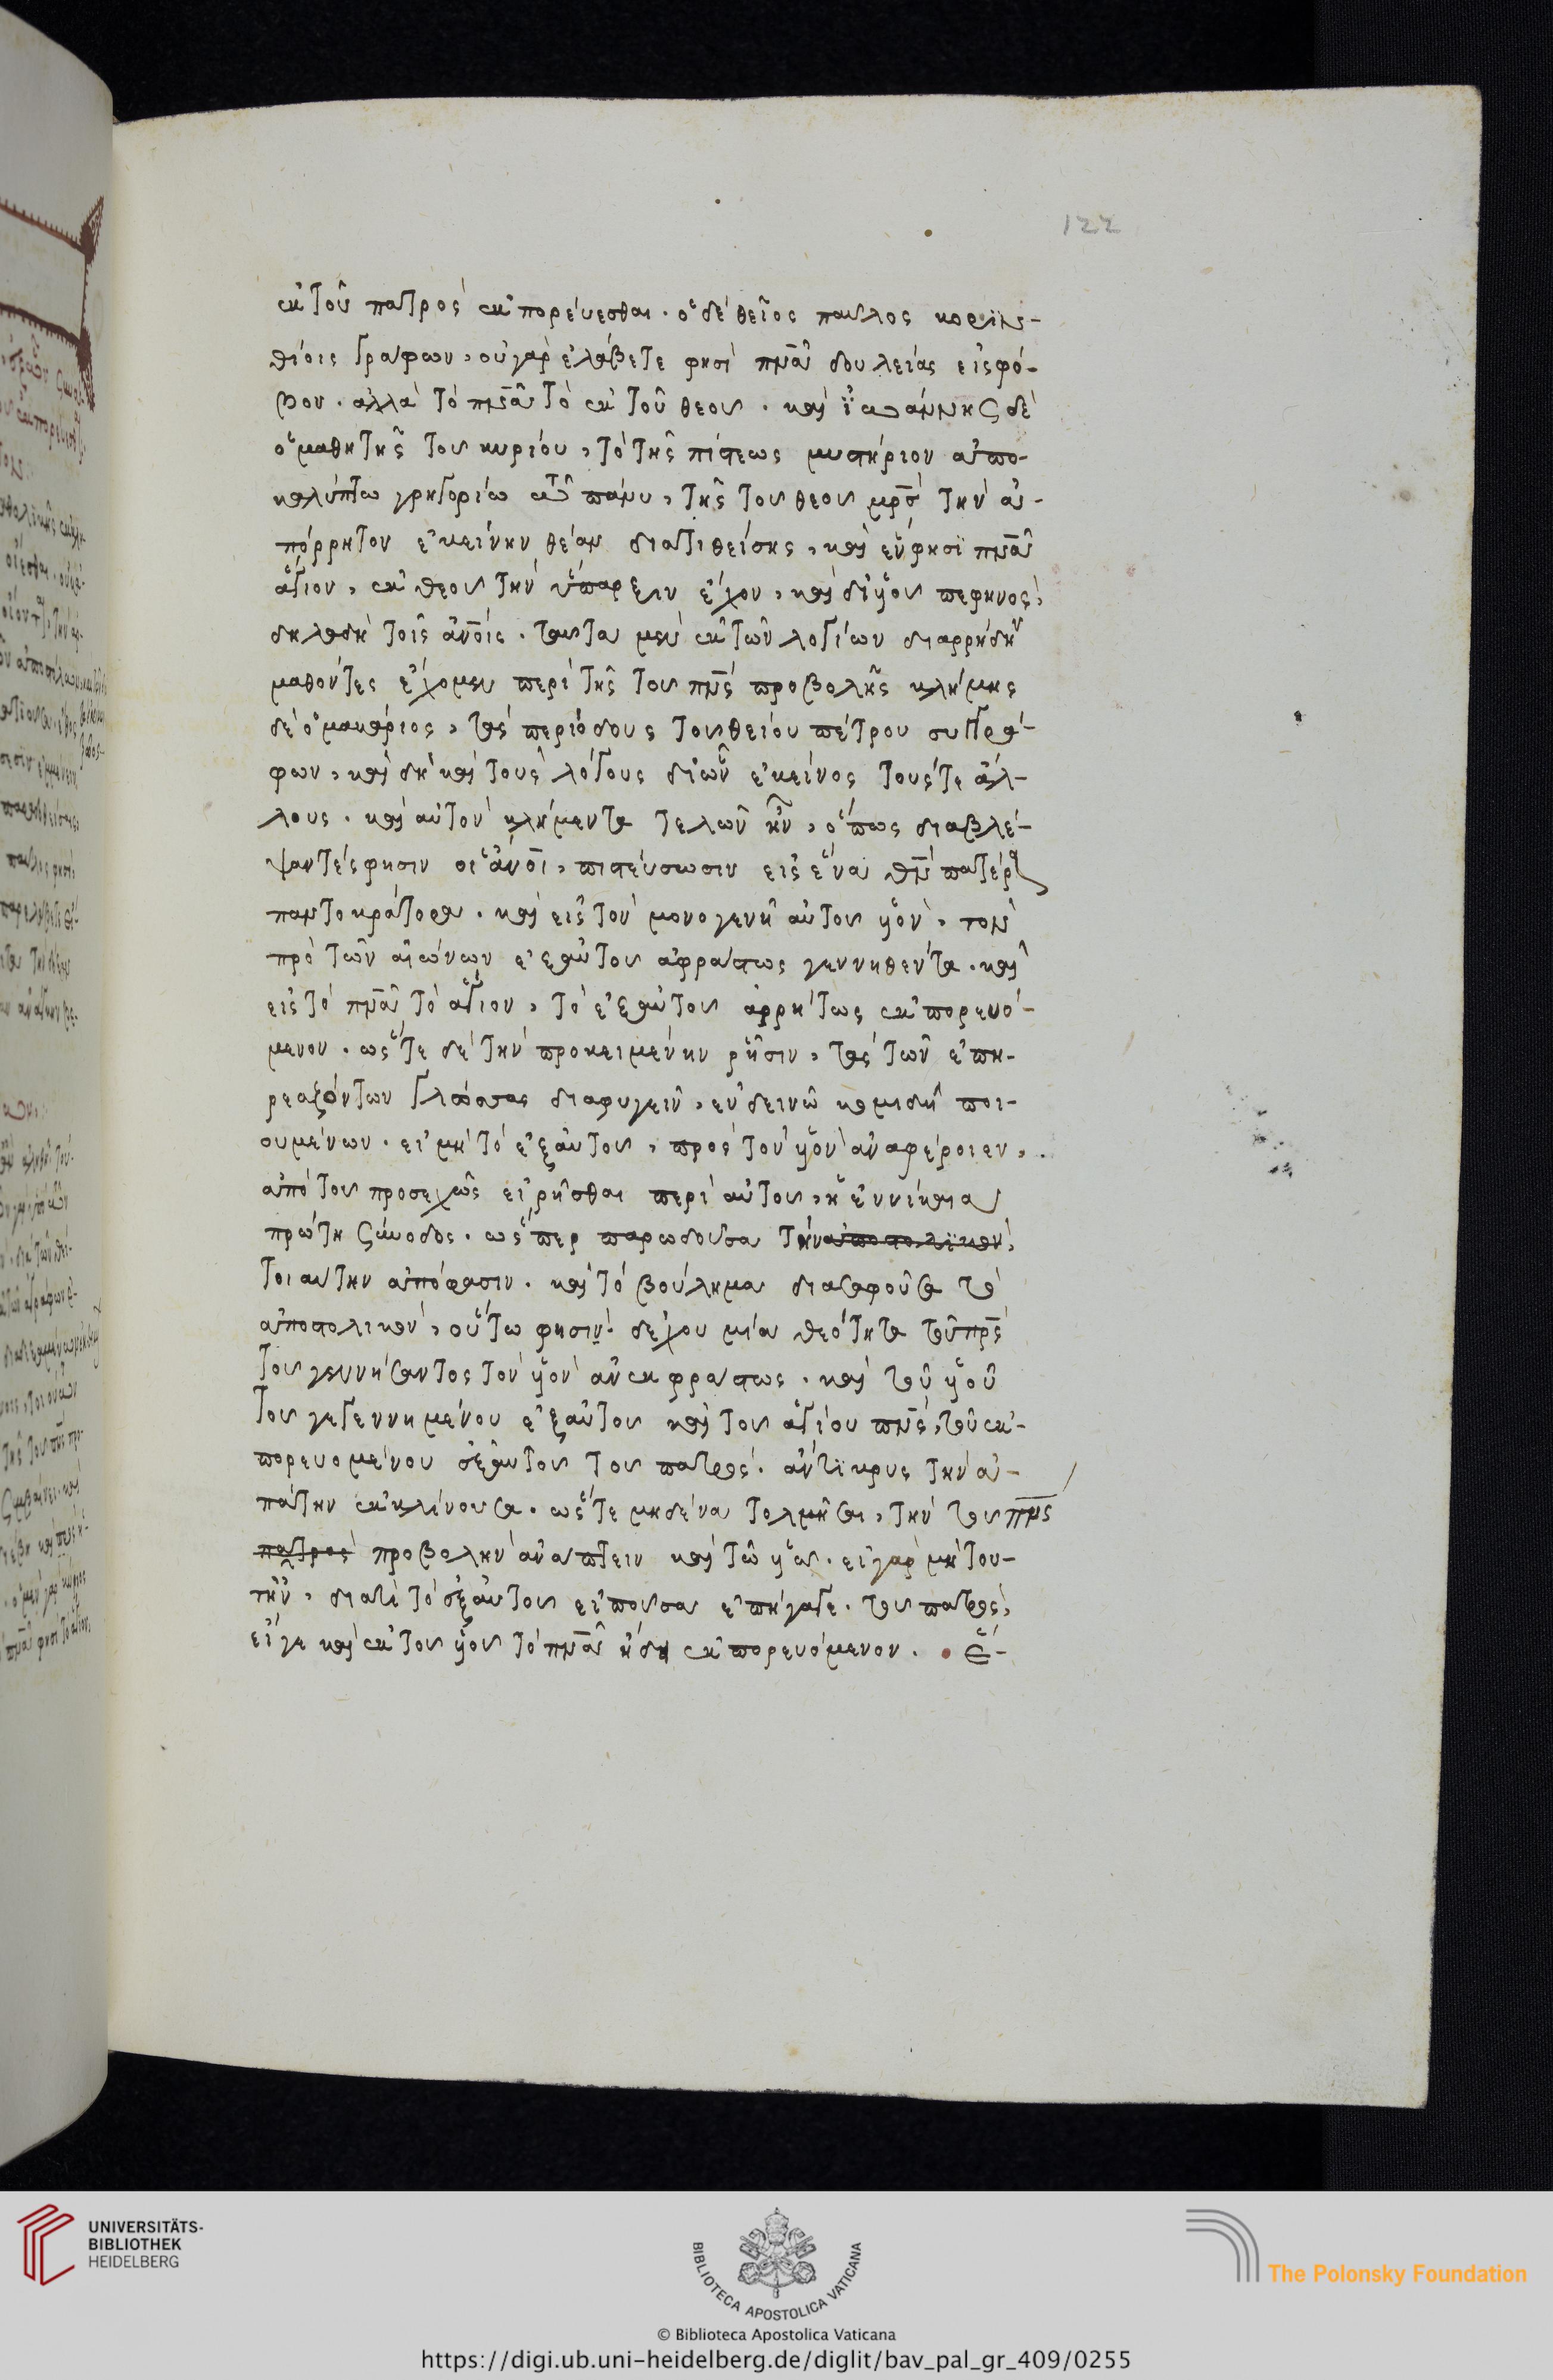 122
ἐκ τοῦ πατρὸς ἐκπορεύεσθαι. ὁ δὲ θεῖος παυλος κορϊν-
θίοις γράφων, οὐ γὰρ ἐλάβετε φησὶ πν̅α δουλείας εἰς φό-
βον. ἀλλὰ τὸ πν̅α τὸ ἐκ τοῦ θεου. καὶ ϊωάννης δὲ
ὁ μαθητὴς του κυρίου, τὸ τῆς πίστεως μυστήριον ἀπο-
καλύπτω γρηγορίω τῶ πάνυ, τῆς του θεου μρ̅σ τὴν ἀ-
πόρρητον ἐκείνην θέαν διατιθείσης, καὶ ἓν φησϊ πν̅α
ἅγιον, ἐκ θεου τὴν ὕπαρξιν ἔχον, καὶ δι υἱου πεφηνὸς,
δηλαδὴ τοῖς ἀν̅οις. ταυτα μὲν ἐκ τῶν λογίων διαρρήδην
μαθόντες ἔχομεν περὶ τῆς του πν̅ς προβολῆς κλήμης
δὲ ὁ μακάριος, τὰς περιόδους του θείου πέτρου συγγρά-
φων, καὶ δὴ καὶ τοὺς λόγους δι ὧν ἐκεῖνος τούς τε ἄλ-
λους. καὶ αὐτὸν κλήμεντα τελῶν ἦν, ὅπως διαβλέ-
ψαντές φησιν οἱ ἄν̅οι, πιστεύσωσιν εἰς ἕνα θν̅ πατέρα
παντοκράτορα. καὶ εἰς τὸν μονογενῆ αὐτου υἱὸν, τὸν
πρὸ τῶν αἰώνων ἐξ αὐτου ἀφράστως γεννηθέντα. καὶ
εἰς τὸ πν̅α τὸ ἅγιον, τὸ ἐξ αὐτου ἀρρήτως ἐκπορευό-
μενον. ὥστε δὲ τὴν προκειμένην ῥῆσιν, τὰς τῶν ἐπη-
ρεαζόντων γλώσσας διαφυγεῖν, ἐν δεινῶ κομιδῆ ποι-
ουμένων. εἰ μὴ τὸ ἐξ αὐτου, πρὸς τὸν υἱὸν ἀναφέροιεν,
ἀπὸ του προσεχῶς εἰρῆσθαι περὶ αὐτου, ἡ ἐν νικαία
πρώτη σύνοδος. ὥσπερ παρωδουσα τὴν ἀποστολϊκὴν,
τοιαυτην ἀπόφασιν. καὶ τὸ βούλημα διασαφοῦσα τὸ
ἀποστολικὸν, οὕτω φησιν. δέχου μίαν θεότητα τοῦ πρ̅ς
του γεννήσαντος τὸν υἱὸν ἀνεκφράστως. καὶ τοῦ υἱοῦ
του γεγεννημένου ἐξ αὐτου καὶ του ἁγίου πν̅ς, τοῦ ἐκ-
πορευομένου ἐξ αὐτου του πατρὸς. ἄντϊκρυς τὴν ἀ-
πάτην ἐκκλίνουσα. ὥστε μηδένα τολμῆσαι, τὴν του πν̅ς
πατρὸς προβολὴν ἀνάπτειν καὶ τῶ υἱῶ. εἰ γὰρ μὴ του-
τ ἦν, διατί τὸ ἐξ αὐτου εἰπουσα ἐπήγαγε. του πατρὸς,
εἴ γε καὶ ἐκ του υἱου τὸ πν̅α ἤδη ἐκπορευόμενον. ἔ-
UNIVERSITÄTS-
BIBLIOTHEK
HEIDELBERG
BIBLIOTECA APOSTOLICA VATICANA
The Polonsky Foundation
© Biblioteca Apostolica Vaticana
https://digi.ub.uni-heidelberg.de/diglit/bav_pal_gr_409/0255